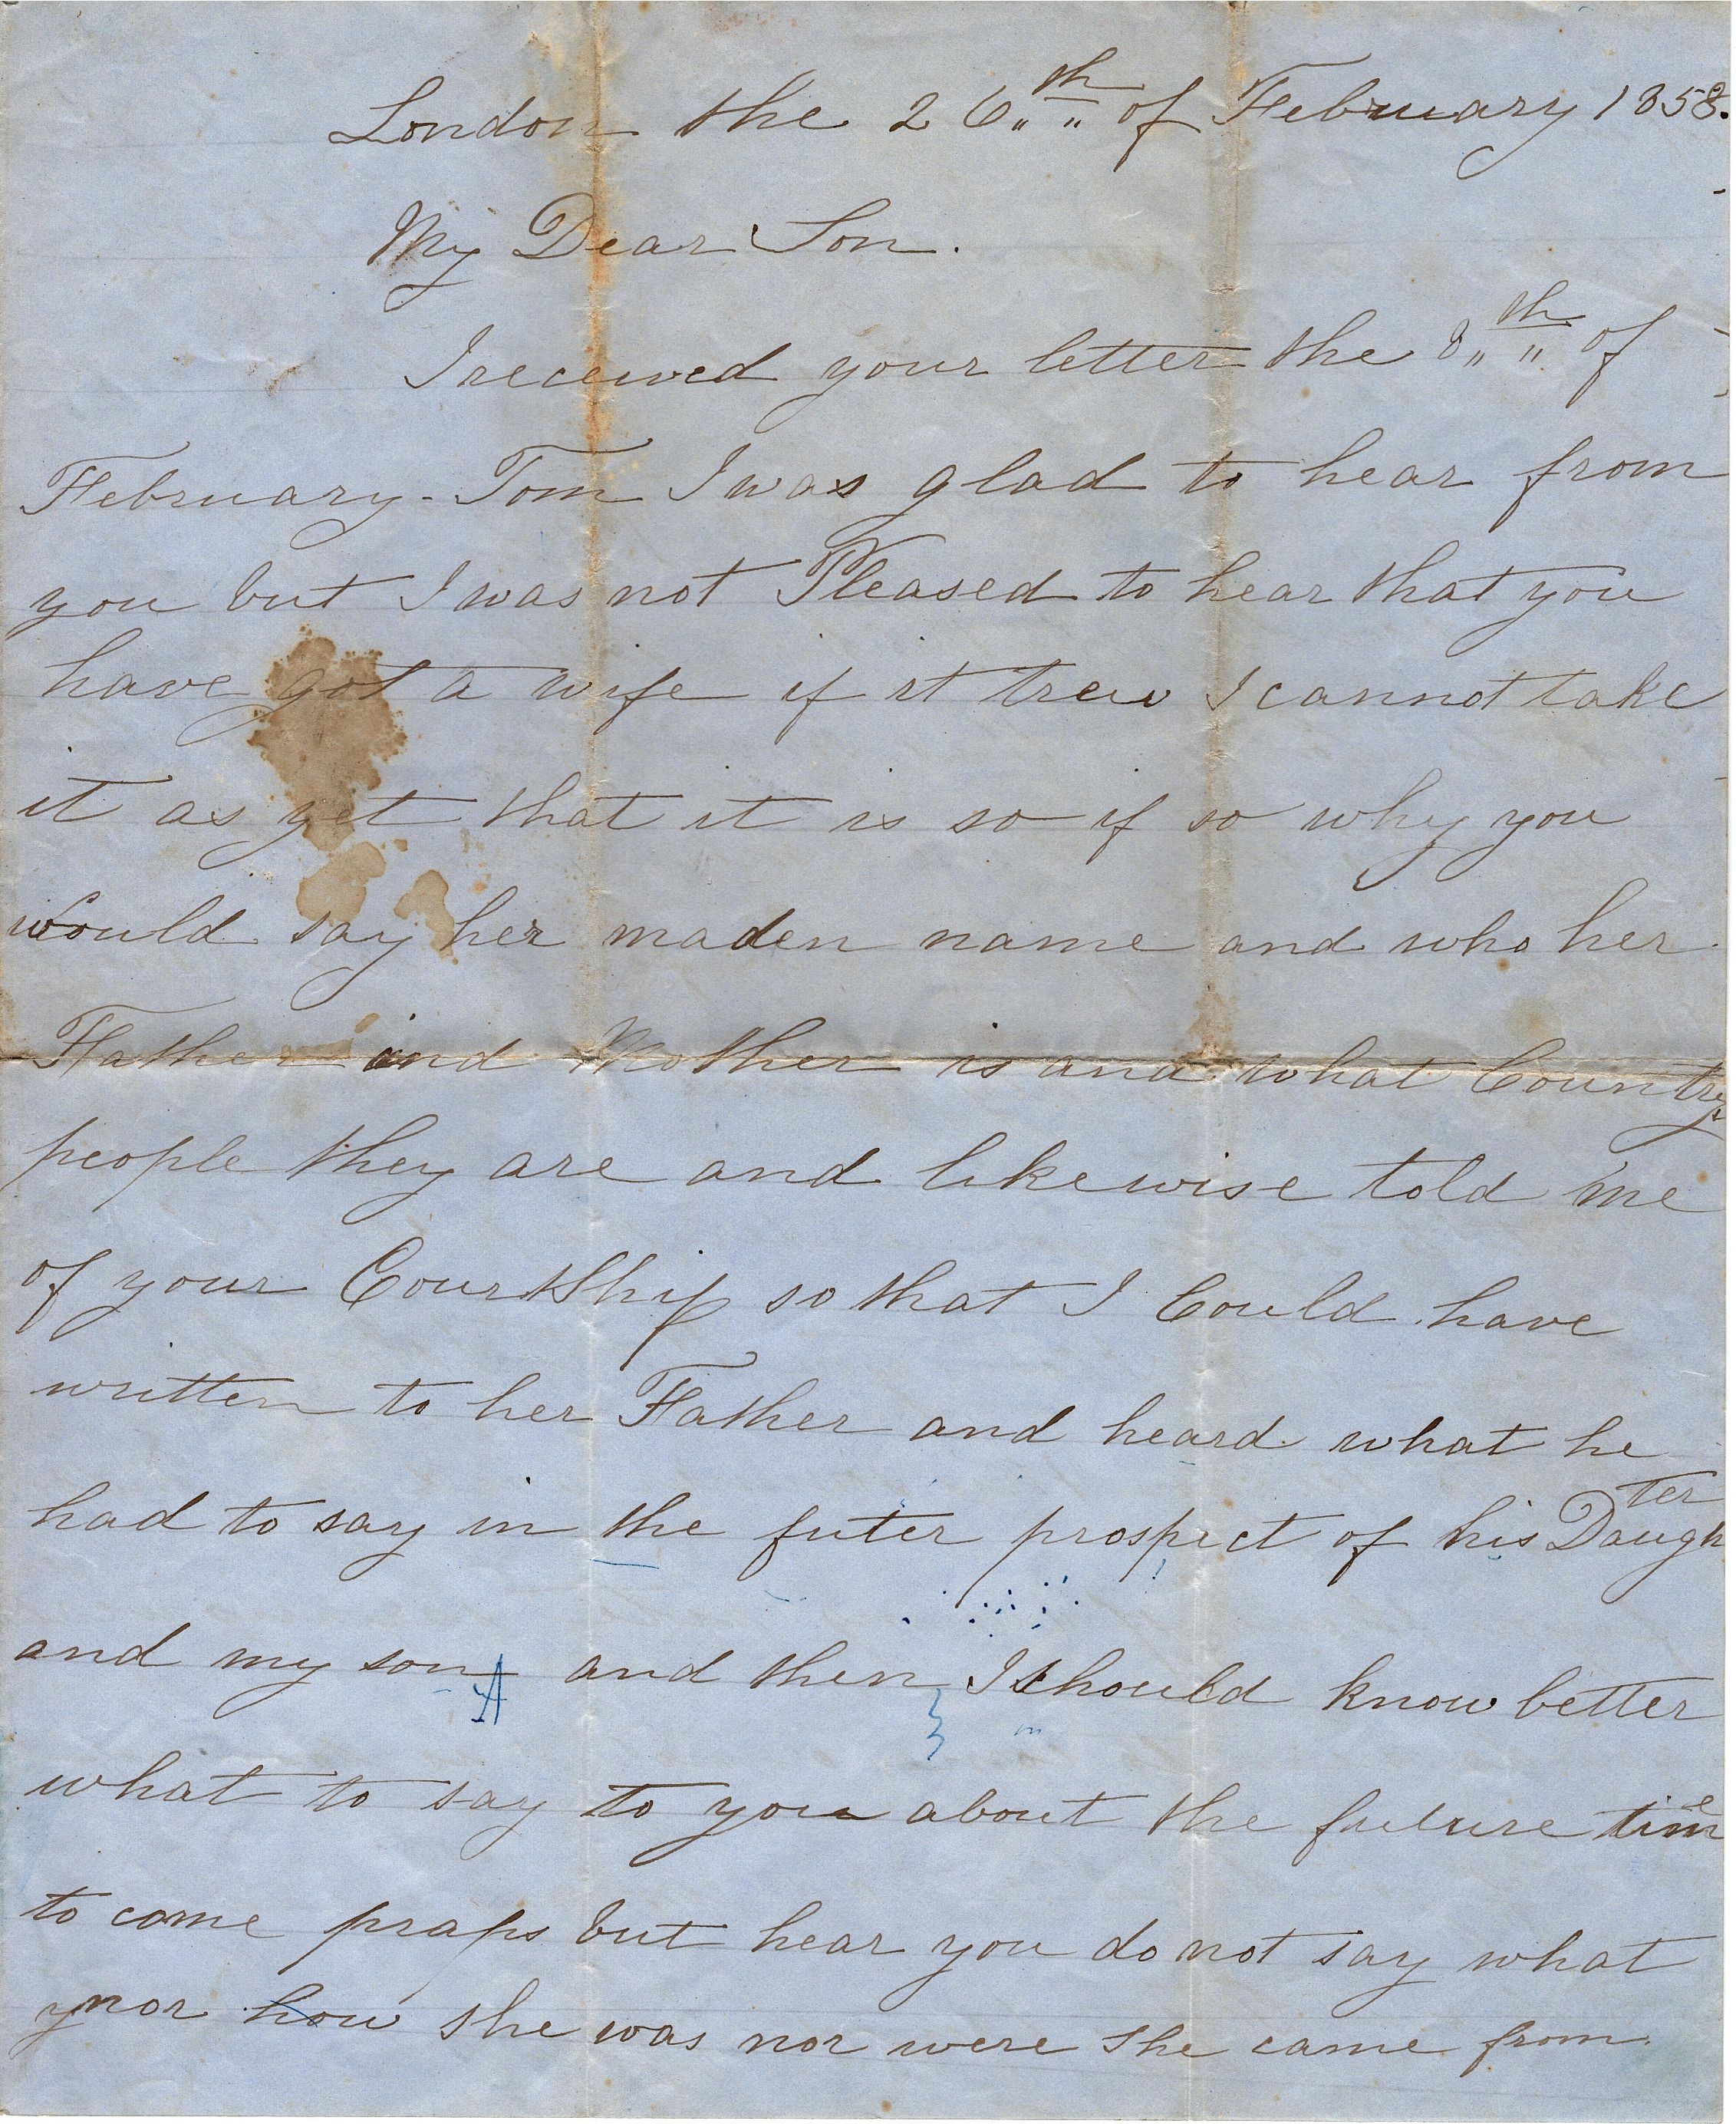 London the 26th of February 1858.
My Dear Son.
I received your letter the 8th of
February - Tom I was glad to hear from
you but I was not Pleased to hear that you
have got a wife if it trew I cannot take
it as yet that it is so if so why you
would say her maden name and who her
Father and Mother is and what Country
people they are and likewise told me
of your CourtShip so that I Could have
written to her Father and heard what he
had to say in the futer prospect of his Daughter
and my son and then I should know better
what to say to you about the future time
to come praps but hear you do not say what
nor how she was nor were she came from